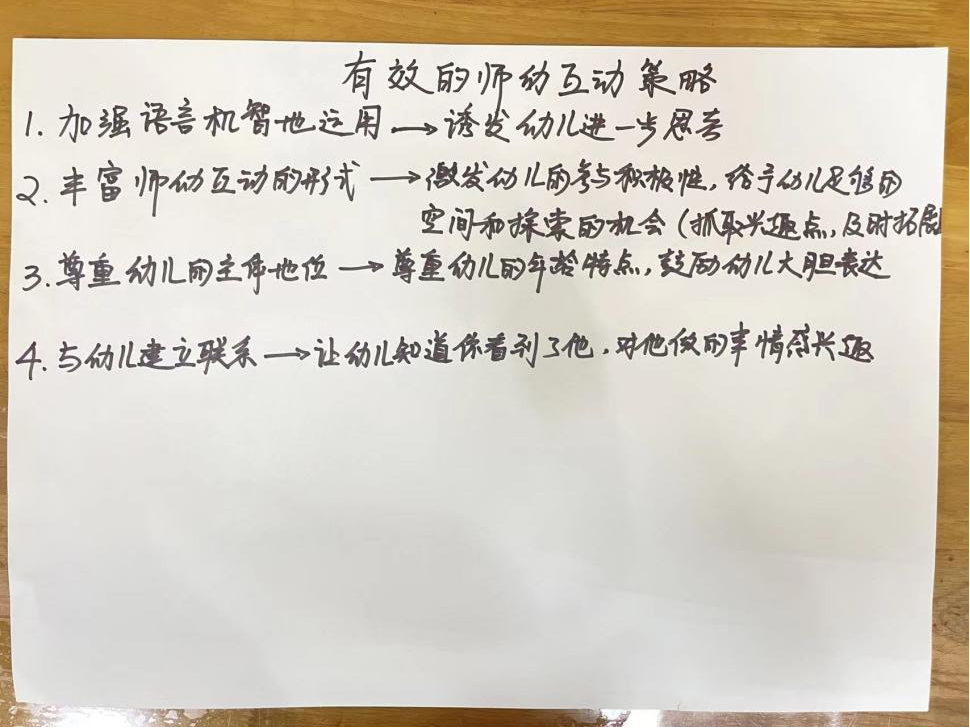 有效的师幼互动策略
1. 加强语言机智地运用→诱发幼儿进一步思考
2. 丰富师幼互动的形式→激发幼儿的参与积极性,给予幼儿足够的
空间和探索的机会(抓取兴趣点,及时拓展
3. 尊重幼儿的主体地位→尊重幼儿的年龄特点,鼓励幼儿大胆表达
4. 与幼儿建立联系→让幼儿知道你看到了他,对他做的事情感兴趣